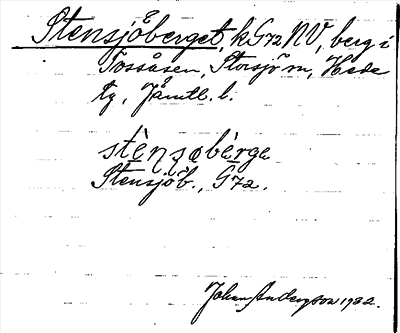 Stensjöberget, k G72 NV, berg i
Tossåsen, Storsjö sn, Hede
tg, Jämtl. l.
stènʂobèrge
Stensjöb., G72.
Johan Anderson 1922.